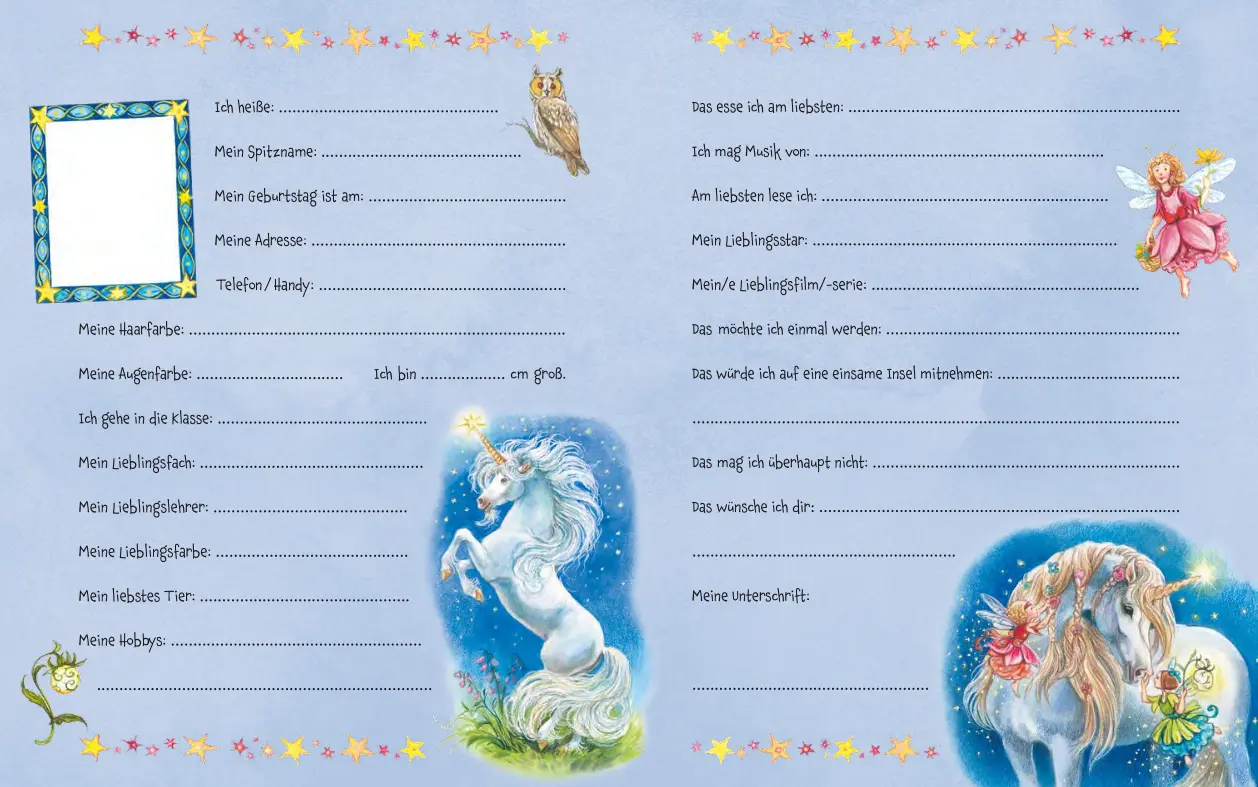 Ich heiße: ......................................................
Mein Spitzname: .................................................
Mein Geburtstag ist am: .................................................
Meine Adresse: ...............................................................
Telefon/Handy: .............................................................
Meine Haarfarbe: .............................................................................................
Meine Augenfarbe: .................................... Ich bin ..................... cm groß.
Ich gehe in die Klasse: ....................................................
Mein Lieblingsfach: .......................................................
Mein Lieblingslehrer: ................................................
Meine Lieblingsfarbe: ...............................................
Mein liebstes Tier: ....................................................
Meine Hobbys: ..............................................................
...................................................................................
Das esse ich am liebsten: ..................................................................................
Ich mag Musik von: .......................................................................
Am liebsten lese ich: .......................................................................
Mein Lieblingsstar: ...........................................................................
Mein/e Lieblingsfilm/-serie: ..................................................................
Das möchte ich einmal werden: .........................................................................
Das würde ich auf eine einsame Insel mitnehmen: .............................................
.........................................................................................................................
Das mag ich überhaupt nicht: ............................................................................
Das wünsche ich dir: .........................................................................................
.................................................................
Meine Unterschrift:
..........................................................